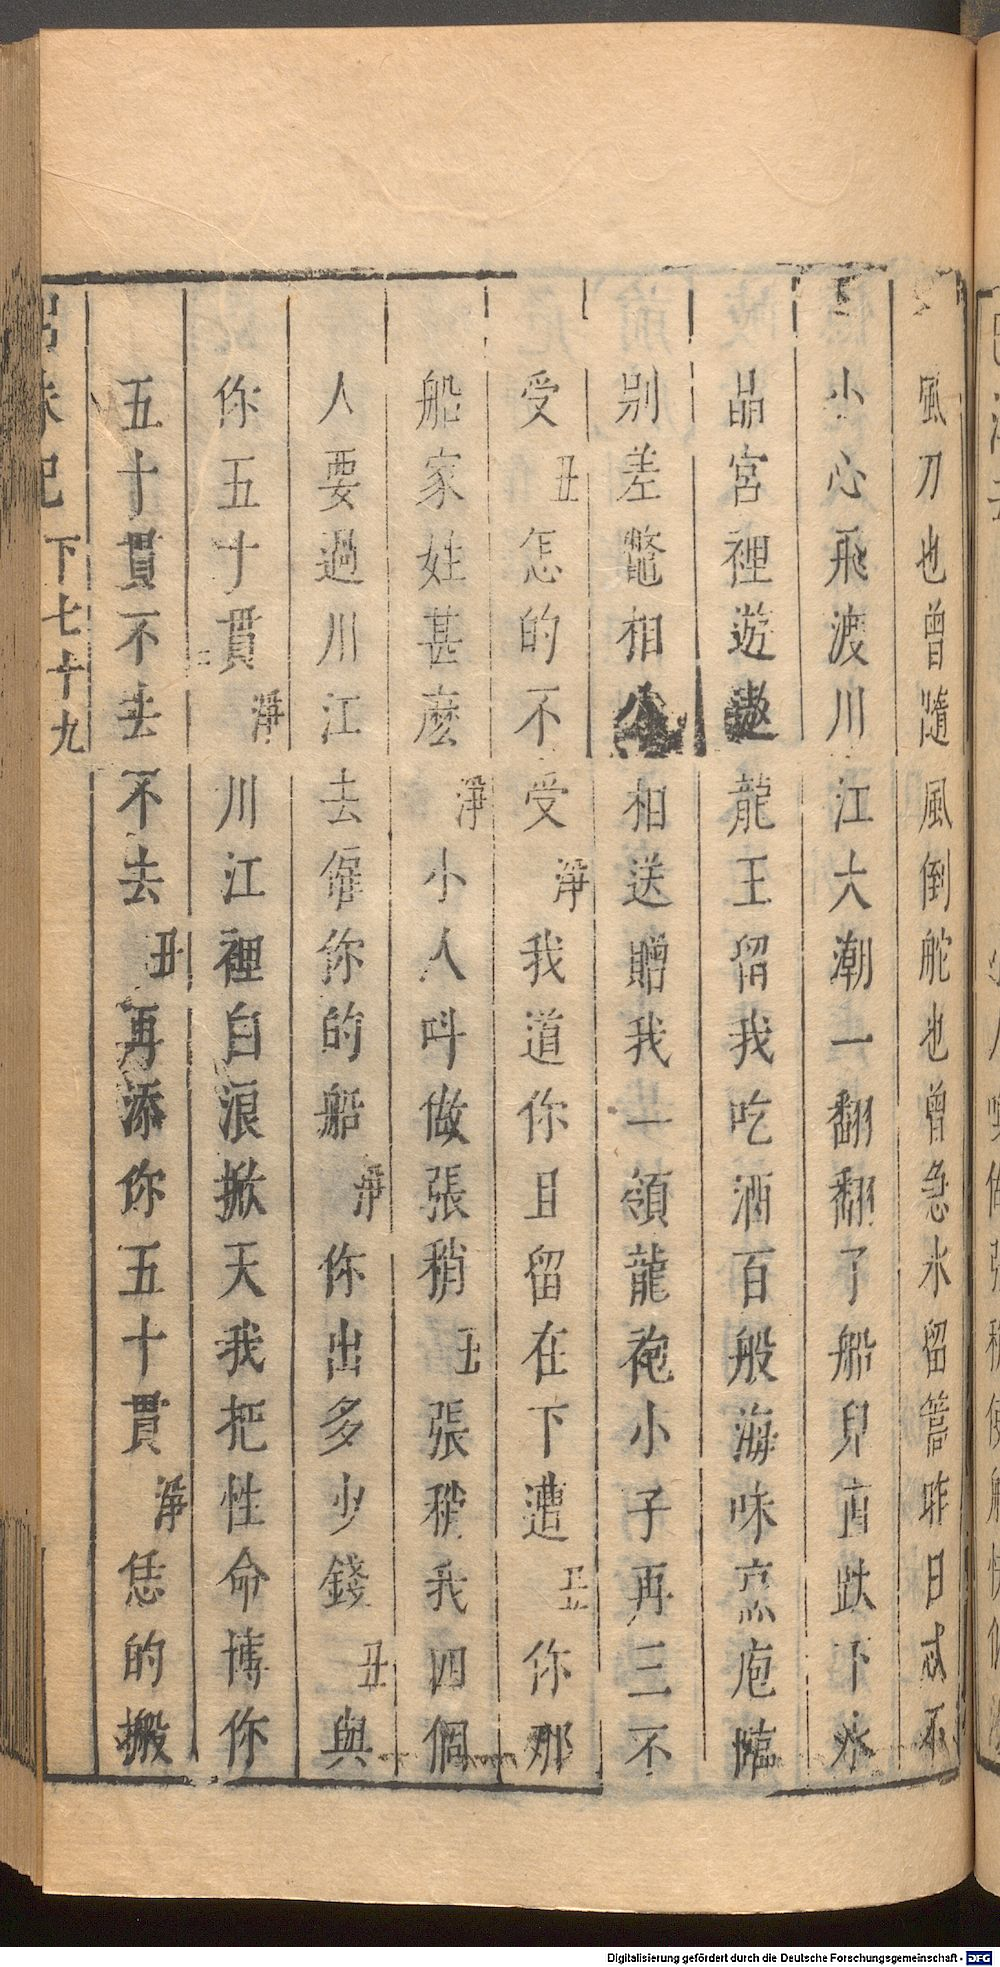 風刀也曾隨風倒舵也曾急水留篙昨日忒不
小心飛渡川江大潮一翻翻了船兒直跌下水
晶宮裡遊遨龍王留我吃酒百般海味烹庖臨
别差鼈相公相送贈我一領龍袍小子再三不
受丑怎的不受淨我道你且留在下遭丑你那
船家姓甚麽淨小人呌做張稍丑張稍我四個
人要過川江去僱你的船淨你出多少錢丑與
你五十貫淨川江裡白浪掀天我把性命博你
五十貫不去不去丑再添你五十貫淨恁的搬
下七十九
Digitalisierung gefördert durch die Deutsche Forschungsgemeinschaft - DFG